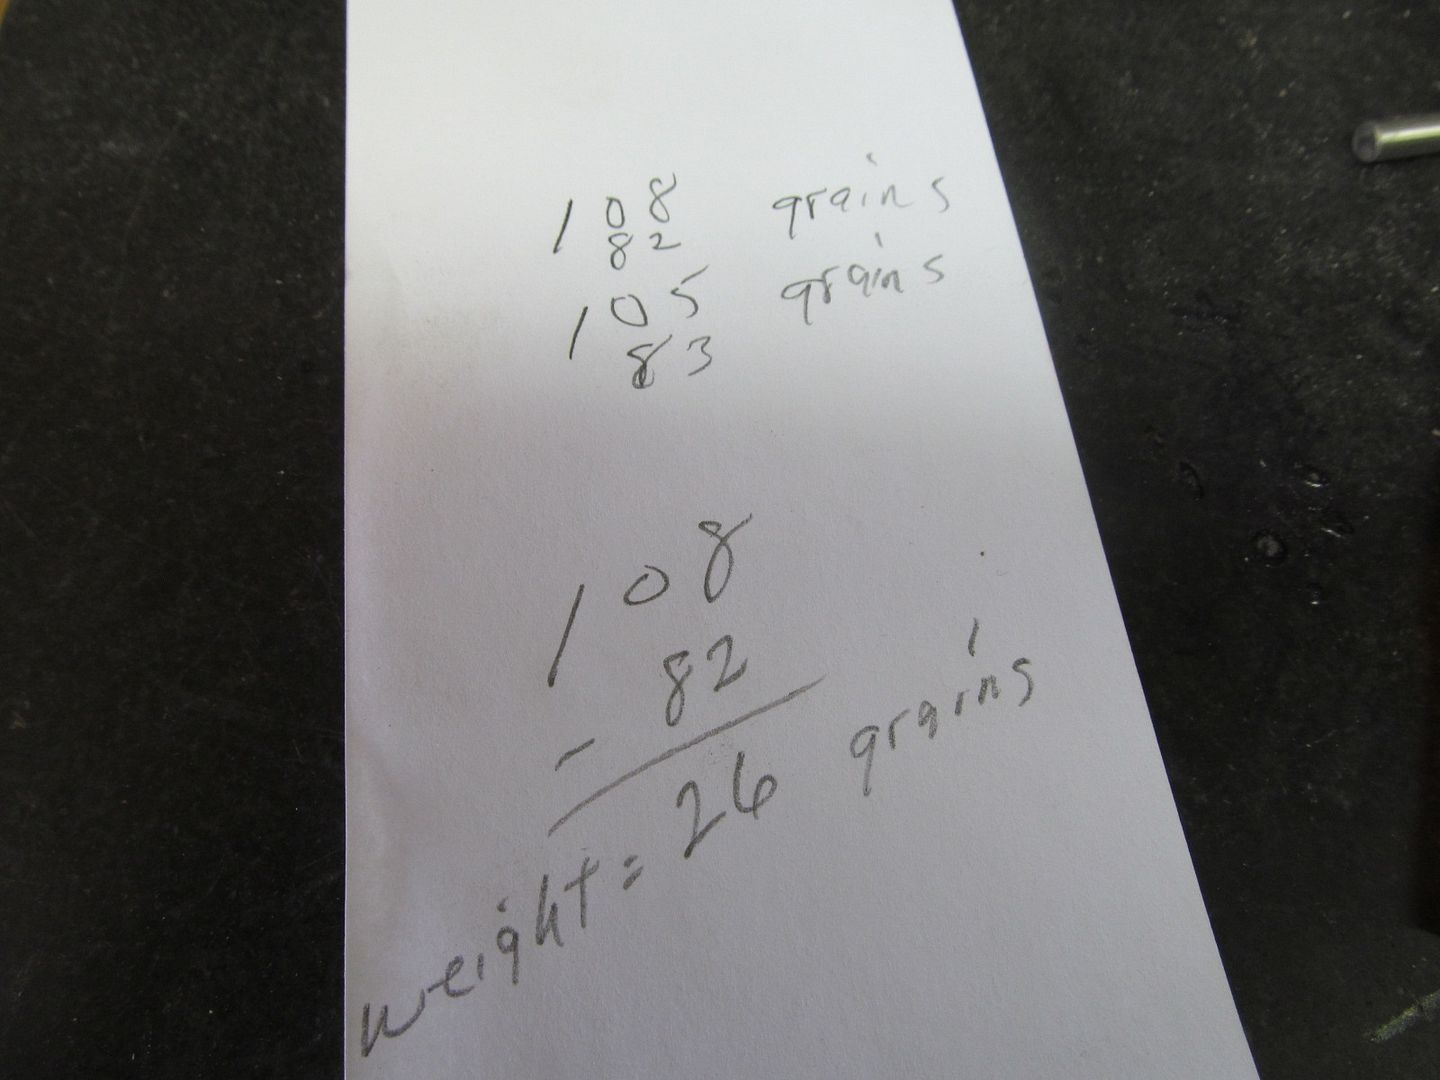 108 grains
82
105 grains
83
108
- 82
weight = 26 grains